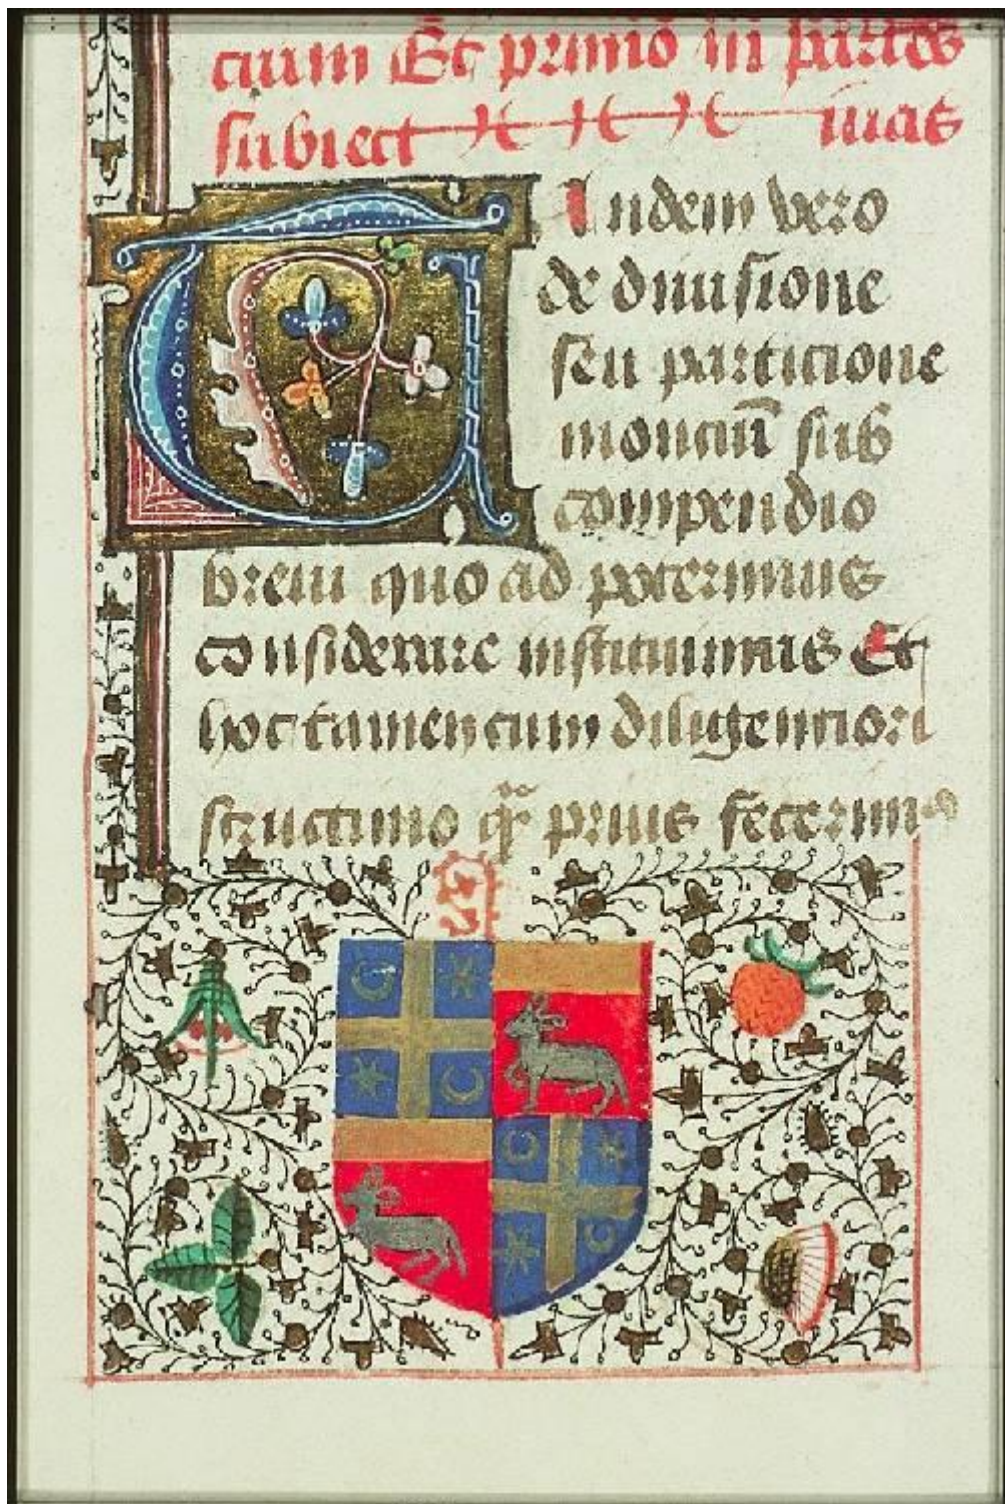 cium Et primo in partes
subiect iuas
TAndem vero
de diuisione
seu particione
monciū sub
compendio
breui quo ad poterimus
considerare instituimus Et
hoc tamen cum diligenciori
scructinio prius fecerim⁹